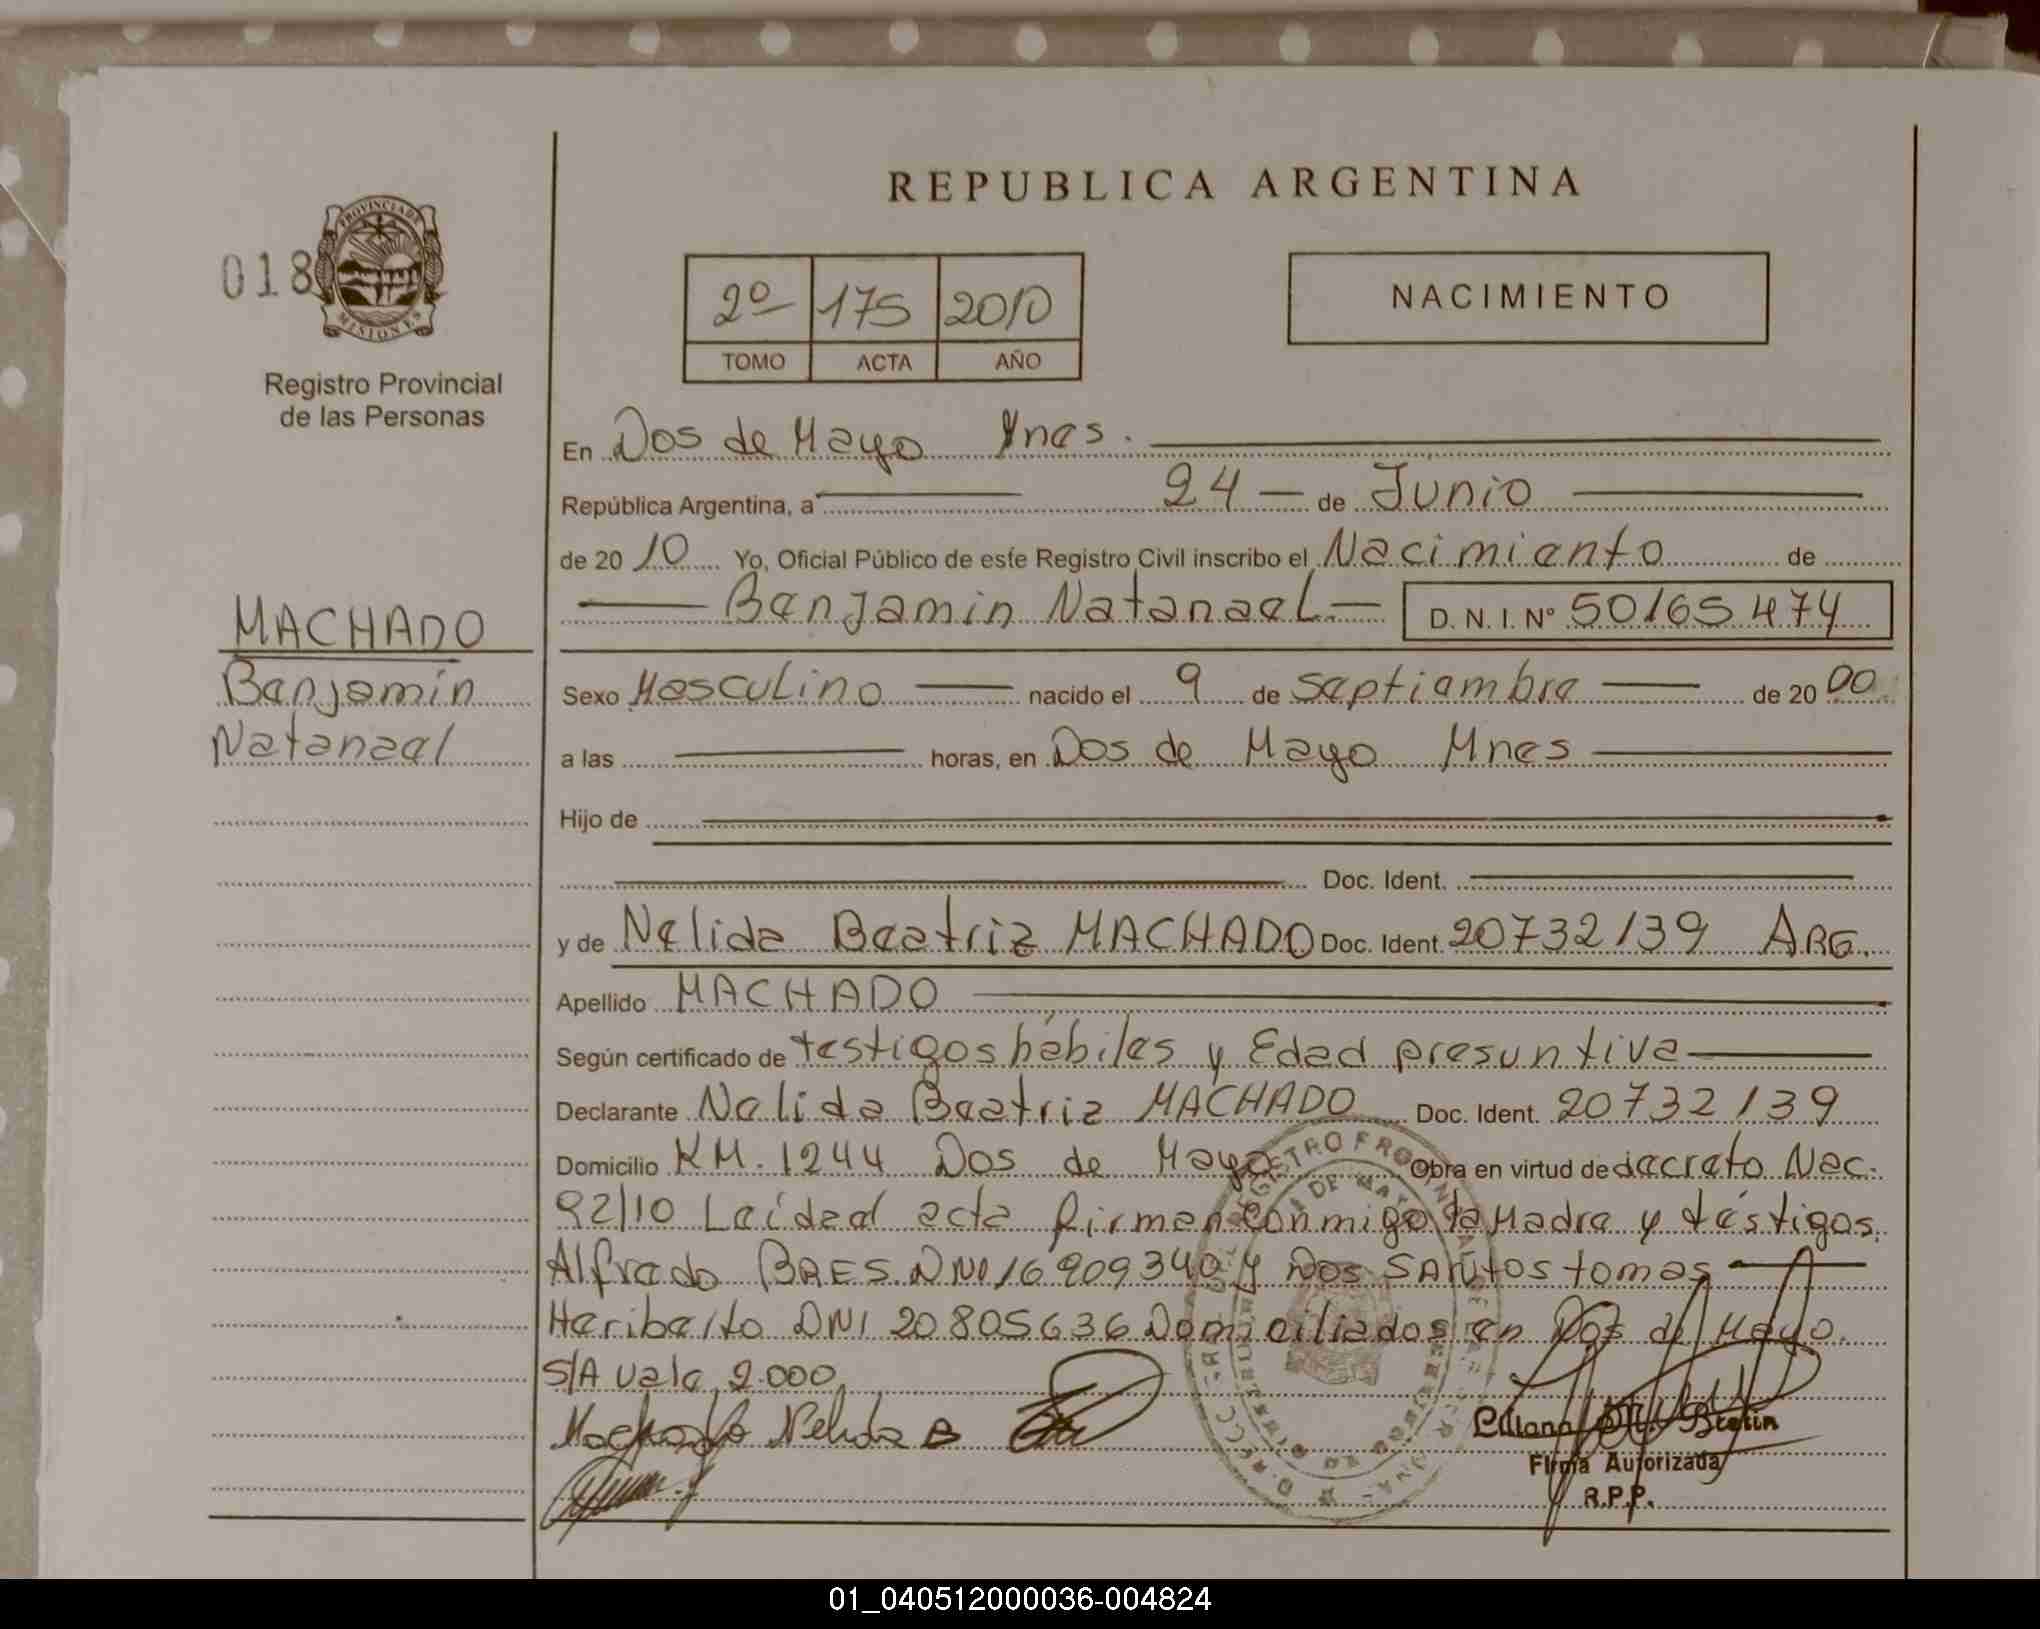 REPUBLICA ARGENTINA
018
PROVINCIA DE MISIONES
Registro Provincial
de las Personas
2º 175 2010
TOMO ACTA AÑO
NACIMIENTO
En Dos de Mayo Mnes.
República Argentina, a 24 de Junio
de 2010 Yo, Oficial Público de este Registro Civil inscribo el Nacimiento de
Benjamin Natanael D. N. I. Nº 50165474
MACHADO
Benjamin
Natanael
Sexo Masculino nacido el 9 de septiembre de 2000
a las horas, en Dos de Mayo Mnes
Hijo de
Doc. Ident.
y de Nelida Beatriz MACHADO Doc. Ident. 20732139 ARG.
Apellido MACHADO
Según certificado de testigos hábiles y Edad presuntiva
Declarante Nelida Beatriz MACHADO Doc. Ident. 20732139
Domicilio KM. 1244 Dos de Mayo Obra en virtud de decreto Nac.
92/10 Leída el acta firman conmigo la Madre y téstigos.
Alfredo BAES DNI 16909340 y Dos SANtos tomas
Heriberto DNI 20805636 Domiciliados en Dos de Mayo.
S/A vale 2.000
Machado Nelida B
Liliana
Firma Autorizada
R.P.P.
01_040512000036-004824